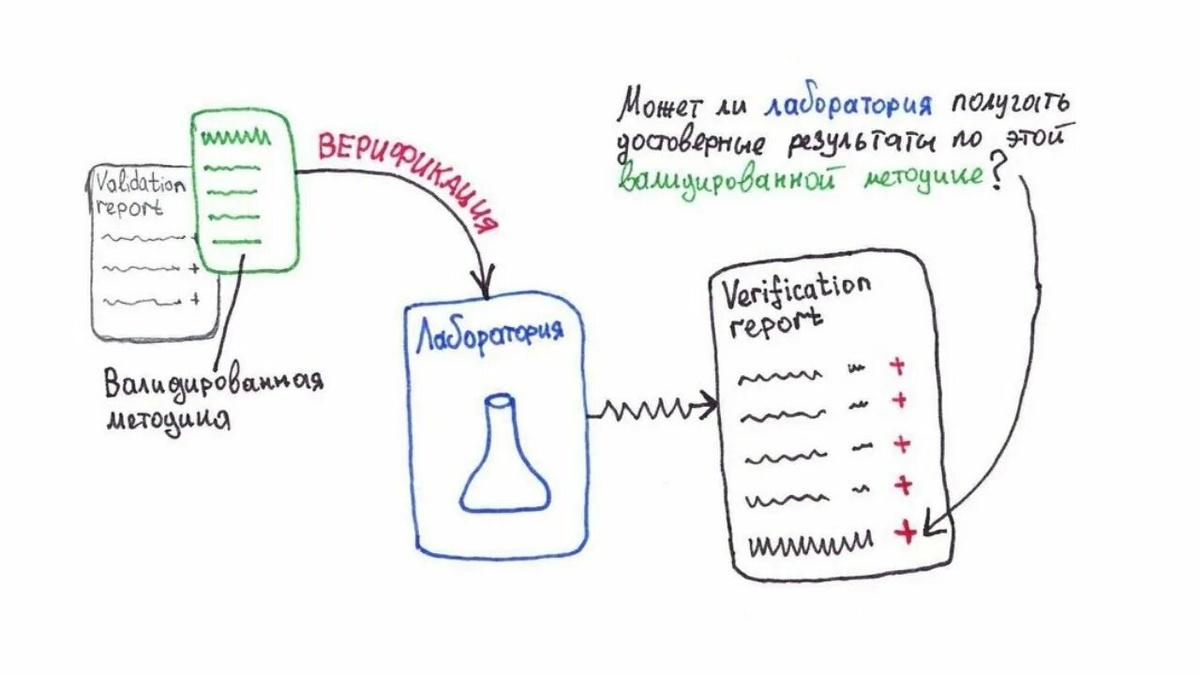 Может ли лаборатория получать
достоверные результаты по этой
валидированной методике?
ВЕРИФИКАЦИЯ
Validation
report
Валидированная
методика
Лаборатория
Verification
report